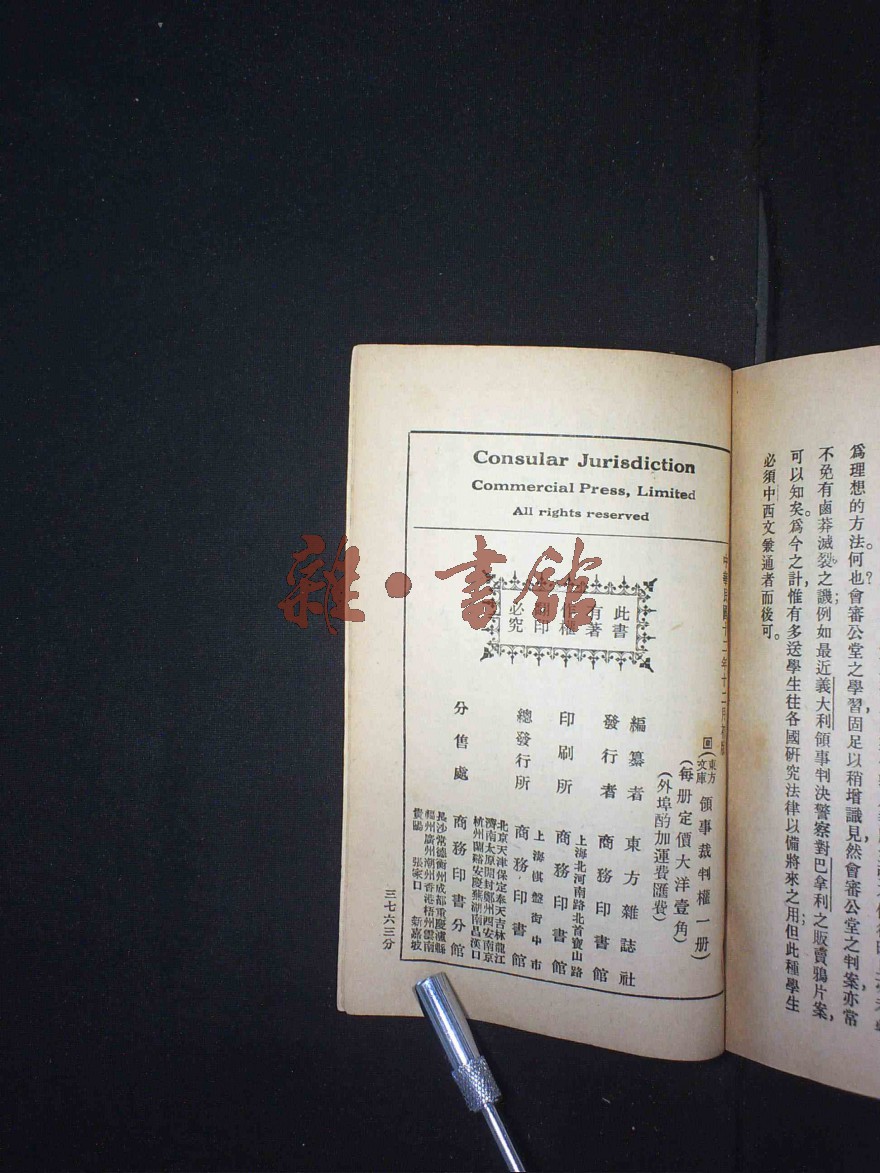 為理想的方法。何也?會審公堂之學習,固足以稍增識見,然會審公堂之判案,亦常
不免有鹵莽滅裂之譏;例如最近義大利領事判決警察對巴拿利之販賣鴉片案,
可以知矣。為今之計,惟有多送學生往各國研究法律以備將來之用;但此種學生
必須中西文兼通者而後可。
Consular Jurisdiction
Commercial Press, Limited
All rights reserved
中華民國十二年十二月初版
(東方文庫)領事裁判權一冊)
(每册定價大洋壹角)
(外埠酌加運費匯費)
此書
有著
作權
翻印
必究
編纂者 東方雜誌社
發行者 商務印書館
上海北河南路北首寶山路
印刷所 商務印書館
上海棋盤街中市
總發行所 商務印書館
北京天津保定奉天吉林龍江
濟南太原開封鄭州西安南京
杭州蘭谿安慶蕪湖南昌漢口
分售處 商務印書分館
長沙常德衡州成都重慶瀘縣
福州廣州潮州香港梧州雲南
貴陽 張家口 新嘉坡
三七六三分
雜·書館